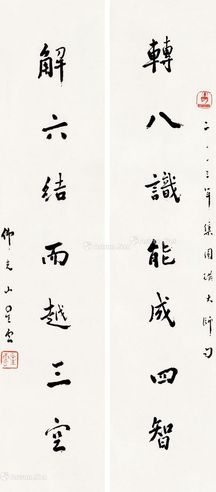 二〇〇三年集圓瑛大師句
轉八識能成四智
解六結而越三空
佛光山星雲